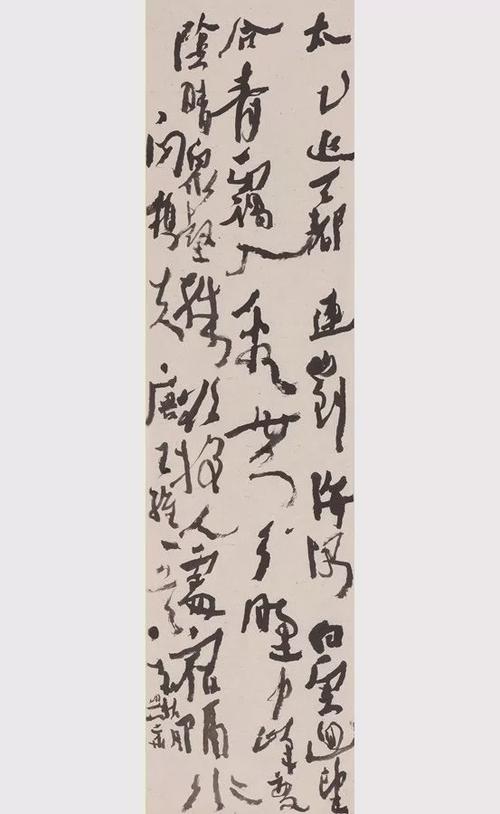 太乙近天都連山到海隅白雲迴望
合青靄入看無分野中峰變
陰晴眾壑殊欲投人處宿隔水
問樵夫唐王維